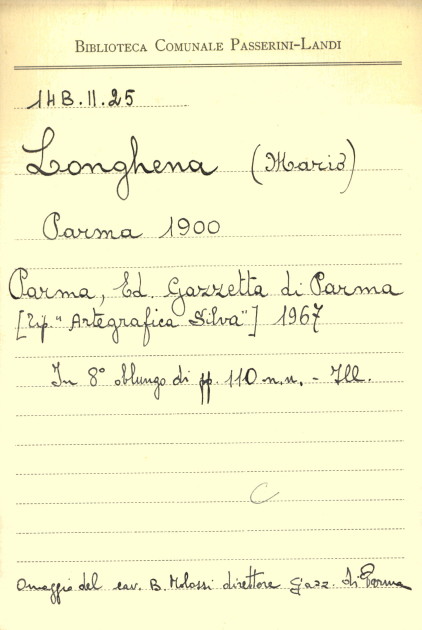 BIBLIOTECA COMUNALE PASSERINI-LANDI
14B.II.25
Longhena (Mario)
Parma 1900
Parma, Ed. Gazzetta di Parma
[Tip. "Artegrafica Silva"] 1967
In 8° oblungo di pp. 110 n.n. - Ill.
C
Omaggio del cav. B. Molossi direttore Gazz. di Parma